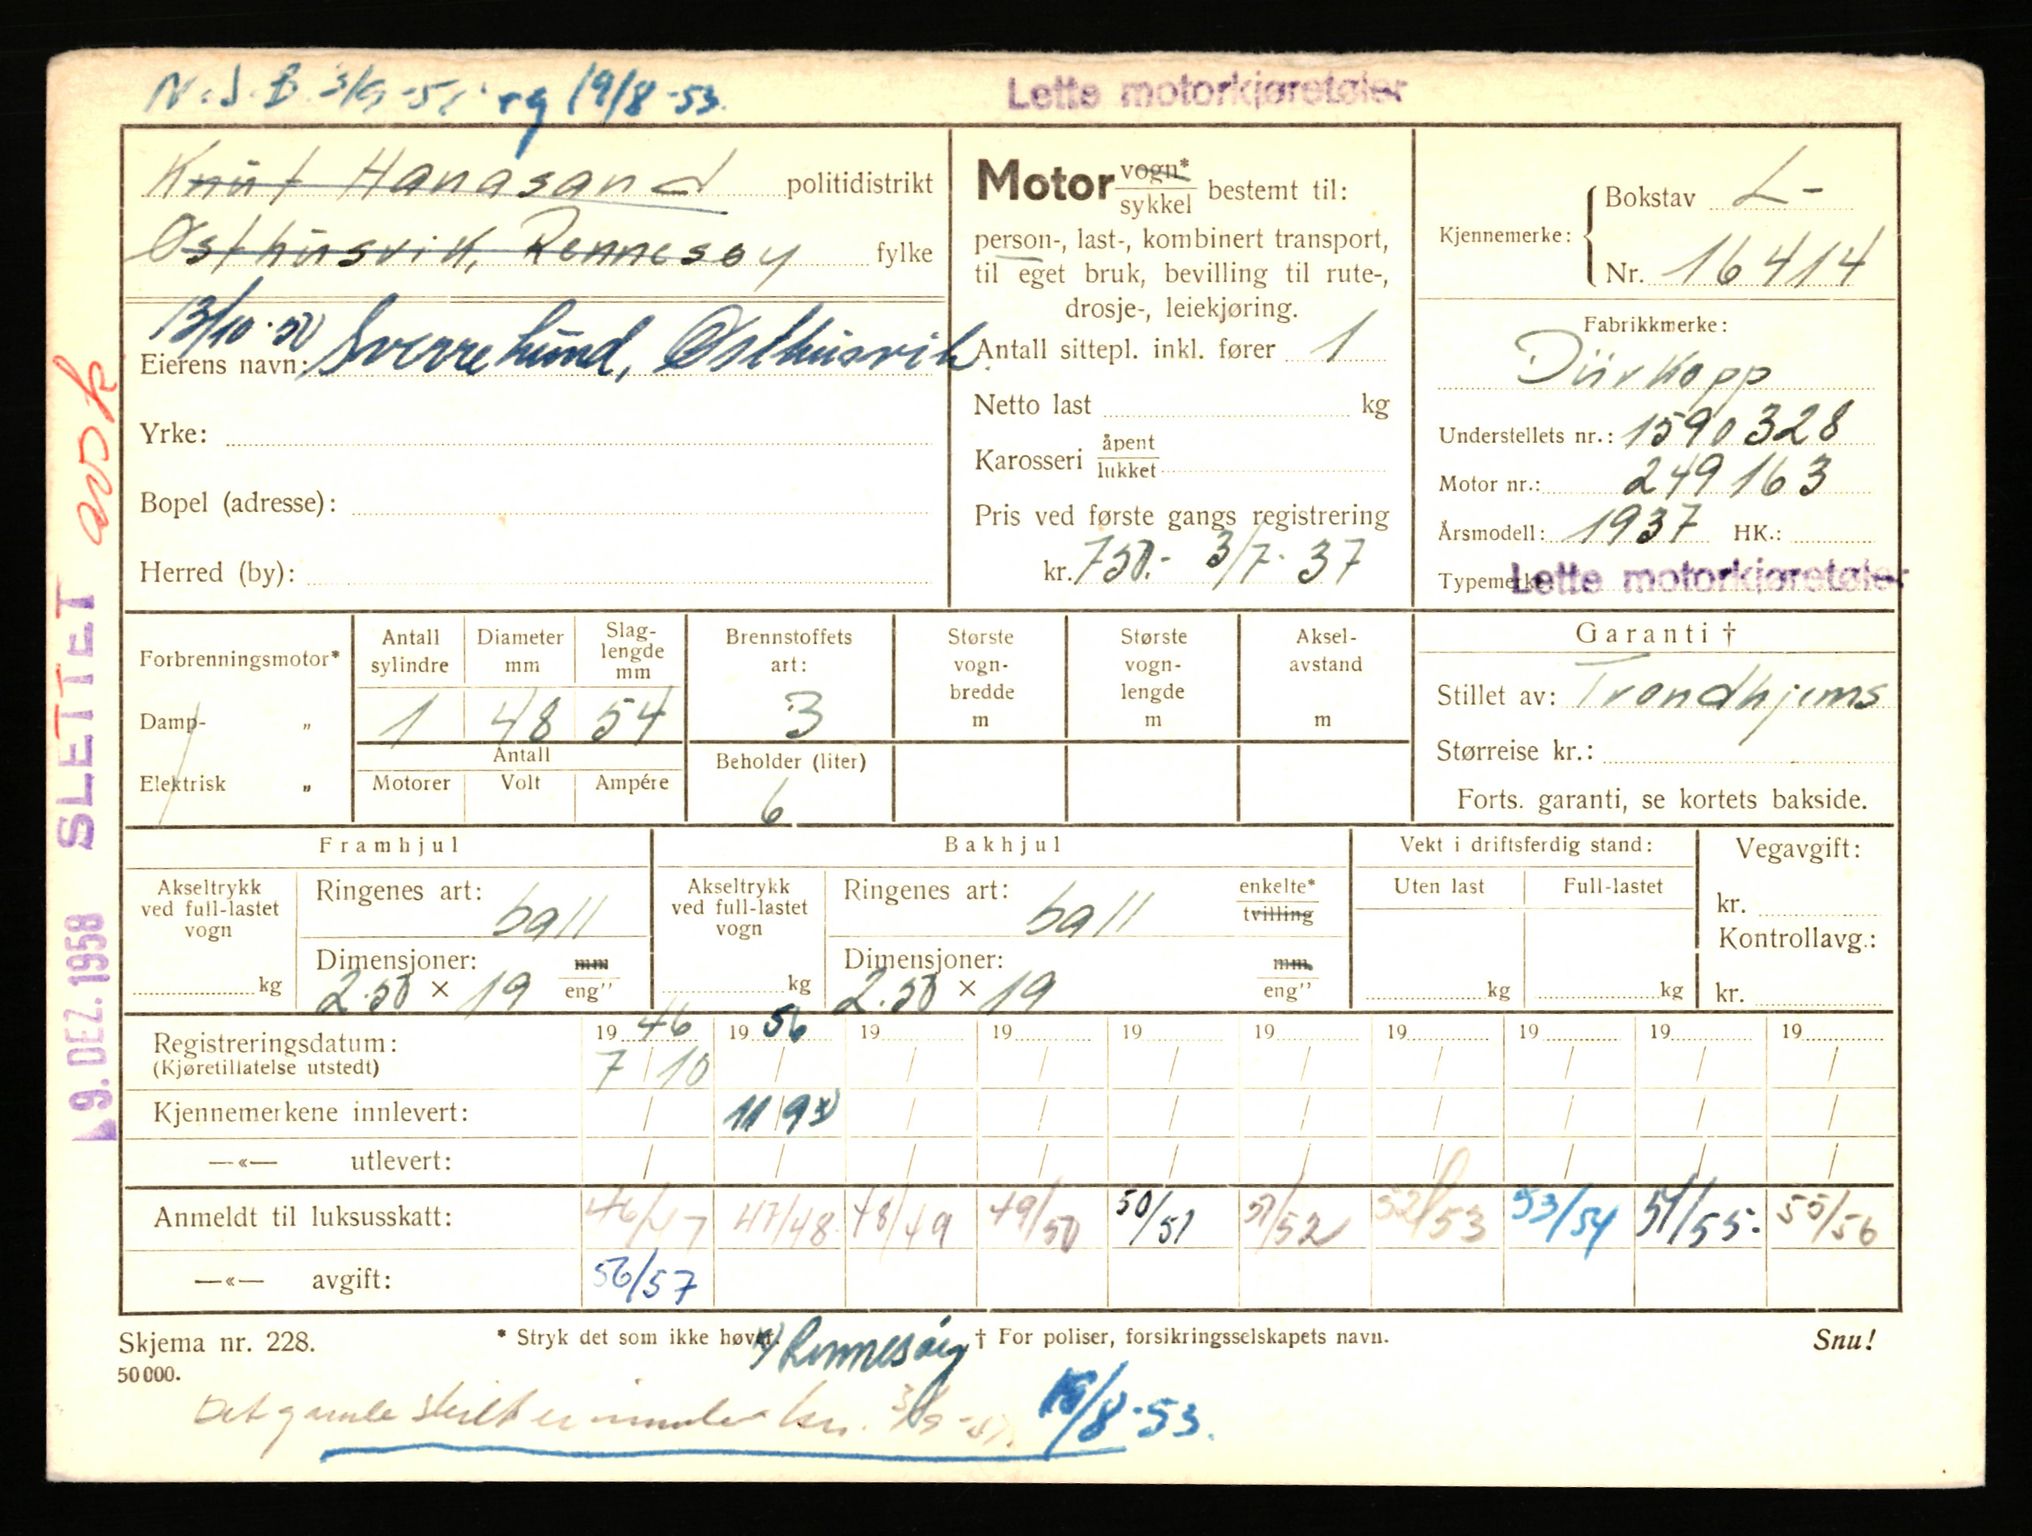 N.S.B. 3/9-51 og 19/8-53.
Lette motorkjøretøier
Knut Hanasand politidistrikt
Østhusvik, Rennesøy fylke
13/10-50
Eierens navn: Sverre Lund, Østhusvik
Yrke:
Bopel (adresse):
Herred (by):
Motor vogn* sykkel bestemt til:
person-, last-, kombinert transport,
til eget bruk, bevilling til rute-,
drosje-, leiekjøring.
Antall sittepl. inkl. fører 1
Netto last kg
Karosseri åpent lukket
Pris ved første gangs registrering
kr. 750.- 3/7-37
Kjennemerke: Bokstav L-
Nr. 16414
Fabrikkmerke:
Dürkopp
Understellets nr.: 1590328
Motor nr.: 249163
Årsmodell: 1937 HK.:
Typemerke Lette motorkjøretøier
Forbrenningsmotor*
Damp- „
Elektrisk „
Antall sylindre 1
Diameter mm 48
Slag-lengde mm 54
Antall
Motorer Volt Ampére
Brennstoffets art: 3
Beholder (liter) 6
Største vogn-bredde m
Største vogn-lengde m
Aksel-avstand m
Garanti †
Stillet av: Trondhjems
Størreise kr.:
Forts. garanti, se kortets bakside.
Framhjul
Akseltrykk ved full-lastet vogn kg
Ringenes art: ball
Dimensjoner: mm
2.50 × 19 eng"
Bakhjul
Akseltrykk ved full-lastet vogn kg
Ringenes art: ball enkelte* tvilling
Dimensjoner: mm.
2.50 × 19 eng"
Vekt i driftsferdig stand:
Uten last Full-lastet
kg kg
Vegavgift:
kr.
Kontrollavg.:
kr.
19 46 19 56 19 19 19 19 19 19 19 19
Registreringsdatum: 7/10
(Kjøretillatelse utstedt)
Kjennemerkene innlevert: 11/9 x)
—«— utlevert:
Anmeldt til luksusskatt: 46/47 47/48 48/49 49/50 50/51 51/52 52/53 53/54 54/55. 55/56
—«— avgift: 56/57
Skjema nr. 228.
* Stryk det som ikke høver.
† For poliser, forsikringsselskapets navn.
Snu!
50000.
x) Rennesøy
Det gamle skilt er 3/9-51. 19/8-53.
SLETTET avsk
9. DEZ. 1958